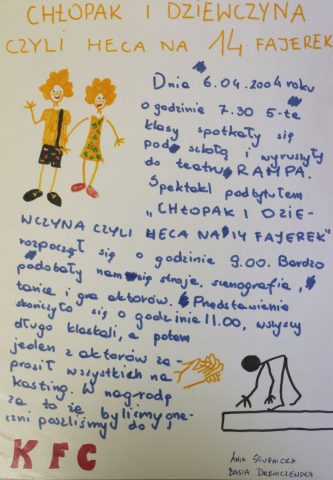 CHŁOPAK I DZIEWCZYNA
CZYLI HECA NA 14 FAJEREK
Dnia 6.04.2004 roku
o godzinie 7.30 5-te
klasy spotkały się
pod szkołą i wyruszyły
do teatru RAMPA.
Spektakl pod tytułem
„CHŁOPAK I DZIE-
WCZYNA CZYLI HECA NA 14 FAJEREK"
rozpoczął się o godzinie 9.00. Bardzo
podobały nam się stroje, scenografia,
tańce i gra aktorów. Przedstawienie
skończyło się o godzinie 11.00, wszyscy
długo klaskali, a potem
jeden z aktorów za-
prosił wszystkich na
kasting. W nagrodę
za to że byliśmy grze-
czni poszliśmy do
KFC
Ania
Basia